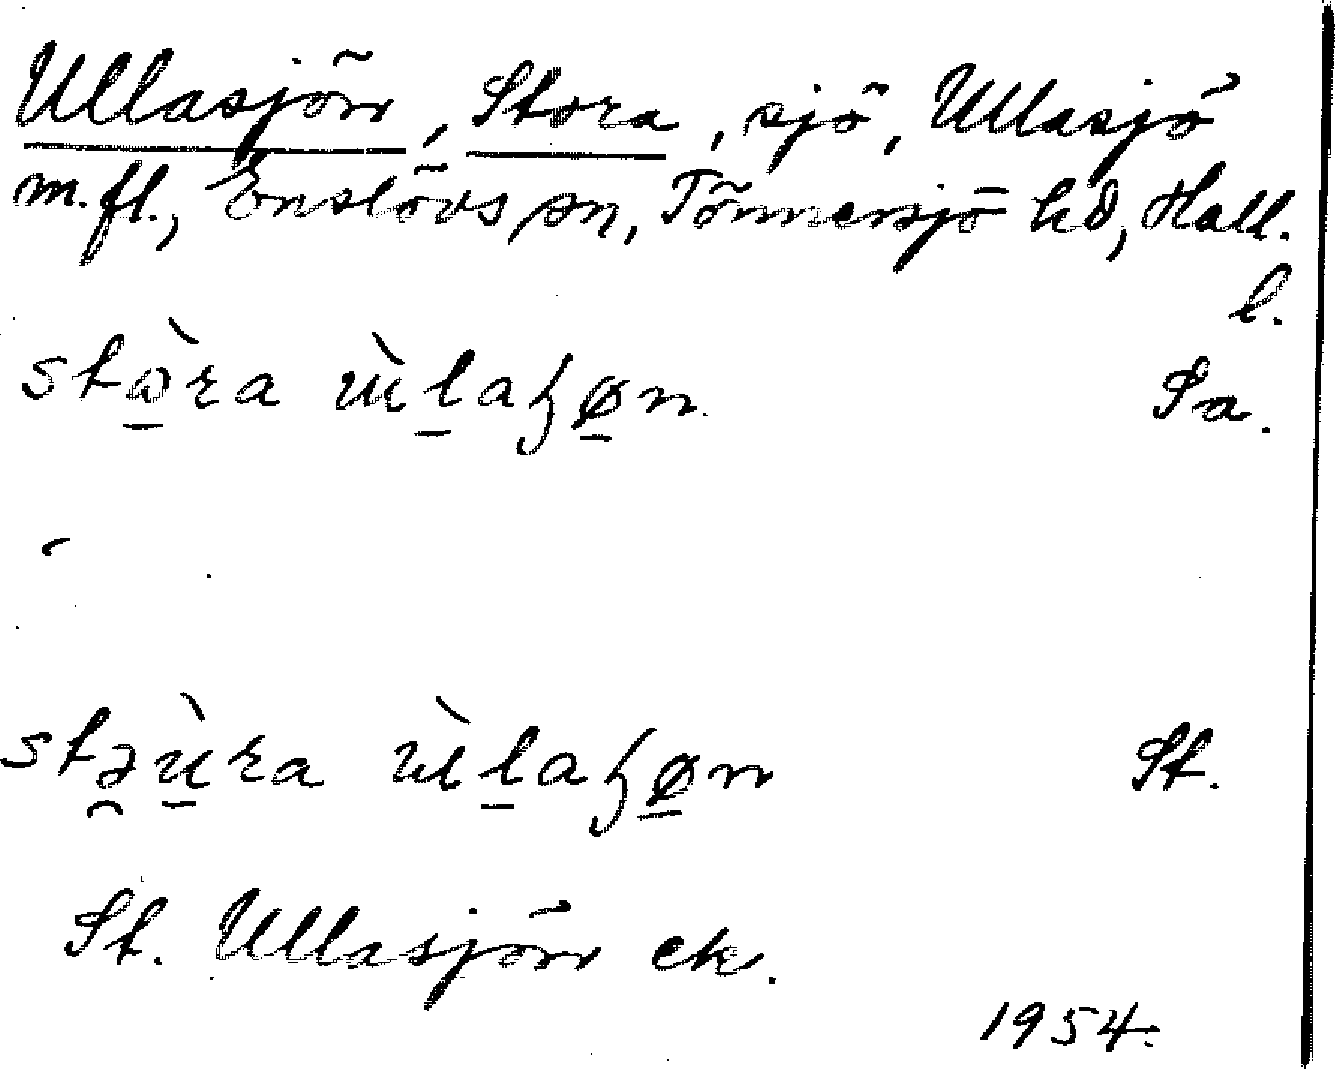 Ullasjön, Stora, sjö, Ullasjö
m.fl., Enslövs sn, Tönnersjö hd, Hall.
l.
stὼ̲ra ɯ̀l̲aɧø̲n Sa.
stə̯ù̲ra ɯ̀l̲aɧø̲n St.
St. Ullasjön ek.
1954.